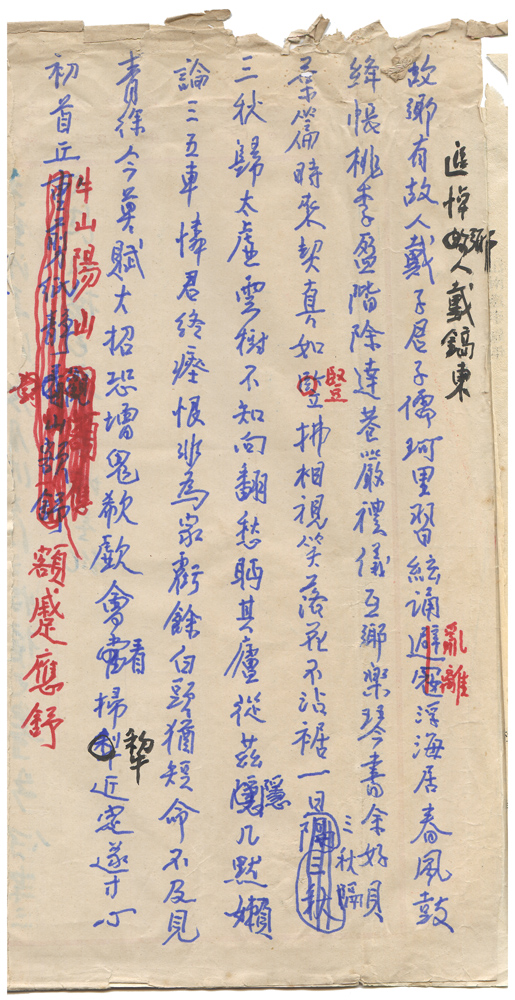 追悼鄉人戴鎬東
故鄉有故人戴子君子儒珂里習絃誦亂離浮海居春風鼓
絳帳桃李盈階除達巷嚴禮儀互鄉樂琴書余好頻
時來契真如豎拂相視笑落花不沾裾一旦三秋隔
三秋歸太虛雲樹不知向翻愁眄其廬從茲隱几默嬾
論三五車憐君終恨非為家虧餘白頭猶短命不及見
青徐今莫賦大招恐增鬼欷歔會看掃犂近遂寸心
初首丘
牛山陽山
額蹙應舒